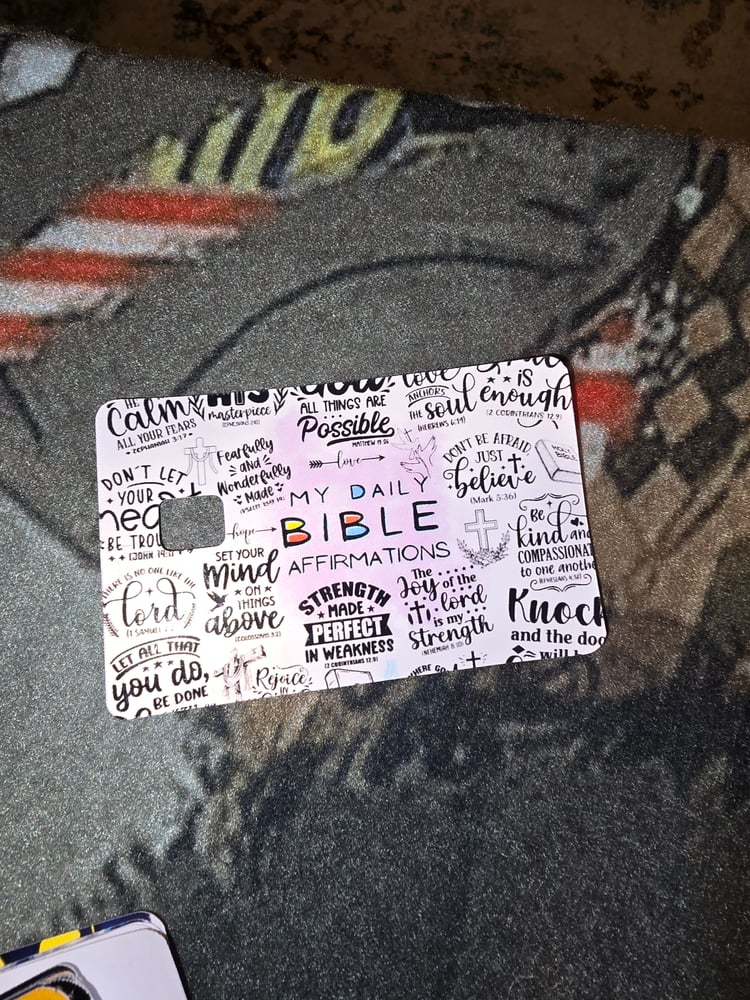 Calm
ALL YOUR FEARS
ZEPHANIAH 3:17
HIS
masterpiece
(EPHESIANS 2:10)
God
ALL THINGS ARE
Possible
MATTHEW 19:26
love
ANCHORS
THE soul
(HEBREWS 6:19)
IS
enough
(2 CORINTHIANS 12:9)
DON'T LET
YOUR
BE
(JOHN
Fearfully
and
Wonderfully
Made
love
DON'T BE AFRAID,
JUST
believe
(Mark 5:36)
HOLY
BIBLE
hope
MY DAILY
BIBLE
AFFIRMATIONS
BE
kind and
to one
THERE IS NO ONE LIKE THE
lord
(1 SAMUEL
SET YOUR
Mind
ON
THINGS
above
(COLOSSIANS 3:2)
STRENGTH
MADE
PERFECT
IN WEAKNESS
(2 CORINTHIANS 12:9)
The
Joy of the
lord
is my
Strength
(NEHEMIAH 8:10)
and the
LET ALL THAT
you do,
BE DONE
Rejoice
IN